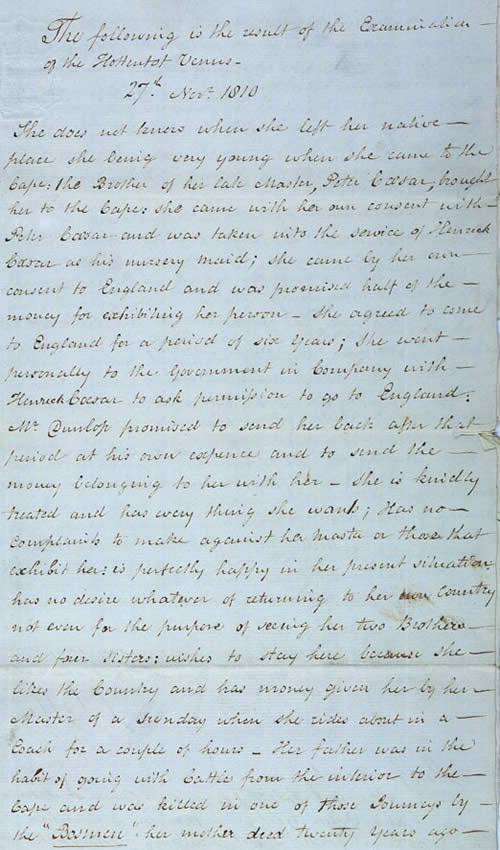 The following is the result of the Examination —
of the Hottentot Venus —
27th Novr. 1810
She does not know when she left her native —
place she being very young when she came to the
Cape: the Brother of her late Master, Peter Cæsar, brought
her to the Cape: she came with her own consent with —
Peter Cæsar and was taken into the service of Henrick
Cæsar as his nursery maid; she came by her own —
consent to England and was promised half of the —
money for exhibiting her person — She agreed to come
to England for a period of six Years; She went —
personally to the Government in Company with —
Henrick Cæsar to ask permission to go to England:
Mr Dunlop promised to send her back after that —
period at his own expence and to send the —
money belonging to her with her — She is kindly
treated and has every thing she wants; Has no —
complaints to make against her master or those that
exhibit her: is perfectly happy in her present situation:
has no desire whatever of returning to her own Country
not even for the purpose of seeing her two Brothers —
and four sisters: wishes to stay here because she —
likes the Country and has money given her by her —
Master of a Sunday when she rides about in a —
Coach for a couple of hours — Her father was in the
habit of going with Cattle from the interior to the —
Cape and was killed in one of those Journeys by —
the "Bosmen" her mother died twenty Years ago —